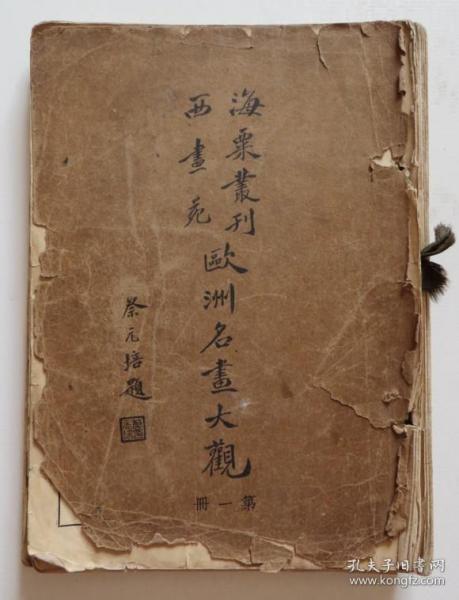 海粟叢刊
西畫苑
歐洲名畫大觀
蔡元培題
第一冊
孔夫子旧书网
www.kongfz.com